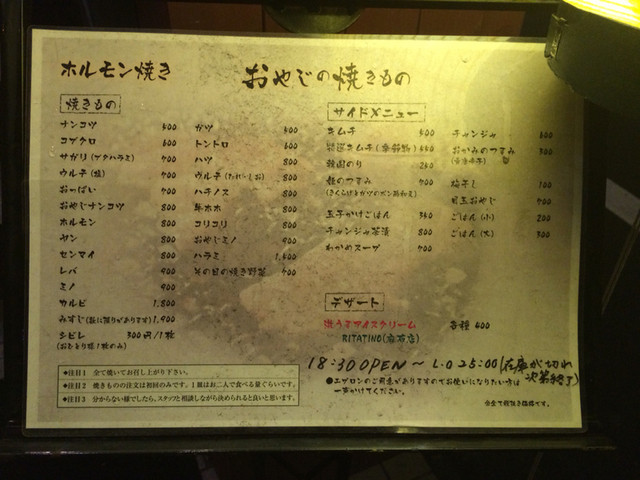 ホルモン焼き
おやじの焼きもの
焼きもの
ナンコツ
コブクロ
サガリ(ゲタハラミ) 700
ウルテ(塩) 700
おっぱい 700
おやじナンコツ 800
ホルモン 800
ヤン 800
センマイ 800
レバ 900
ミノ 900
カルビ 1,800
みすじ(数に限りがあります) 1,900
シビレ 300円/1枚
(おひとり様1枚のみ)
ガツ
トントロ
ハツ 700
ウルテ 700
ハチノス 800
コリコリ 800
おやじミノ 900
ハラミ
その日の焼き野菜 700
サイドメニュー
キムチ
韓国のり
玉子かけごはん
チャンジャ茶漬 800
わかめスープ 700
チャンジャ
おかみのつまみ
梅干し 100
目玉おやじ
ごはん(小) 200
ごはん(大) 300
デザート
激うまアイスクリーム 各種
RITATINO
18:30 OPEN ～ L.O 25:00 (在庫が切れ
次第終了)
●エプロンのご用意がありますのでお使いになりたい方は
一声かけてください。
◆注目1 全て焼いてお召し上がり下さい。
◆注目2 焼きものの注文は初回のみです。1皿はお二人で食べる量ぐらいです。
◆注目3 分からない様でしたら、スタッフと相談しながら決められると良いと思います。